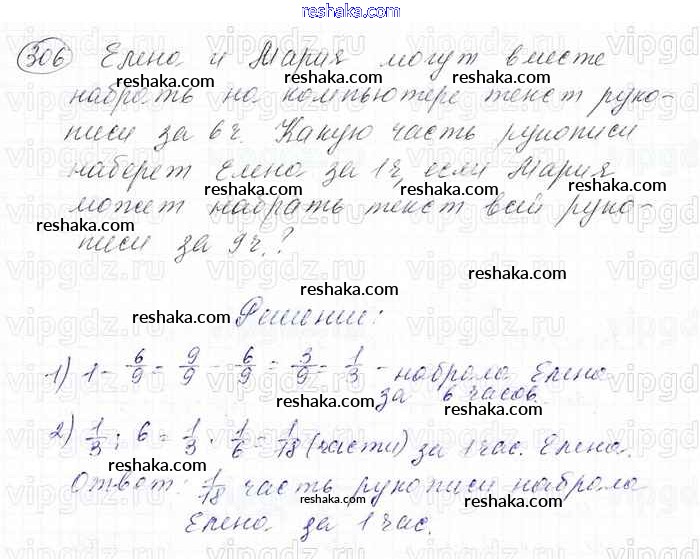 reshaka.com
306 Елена и Мария могут вместе
reshaka.com reshaka.com
набрать на компьютере текст руко-
reshaka.com reshaka.com
писи за 6 ч. Какую часть рукописи
reshaka.com reshaka.com
наберет Елена за 1 ч, если Мария
reshaka.com reshaka.com
может набрать текст всей руко-
reshaka.com reshaka.com
писи за 9 ч.?
reshaka.com reshaka.com
Решение:
reshaka.com reshaka.com
1) 1 - 6/9 = 9/9 - 6/9 = 3/9 = 1/3 - набрала Елена
за 6 часов.
reshaka.com reshaka.com
2) 1/3 : 6 = 1/3 · 1/6 = 1/18 (части) за 1 час. Елена.
reshaka.com reshaka.com
Ответ: 1/18 часть рукописи набрала
reshaka.com reshaka.com reshaka.com
Елена за 1 час.
reshaka.com